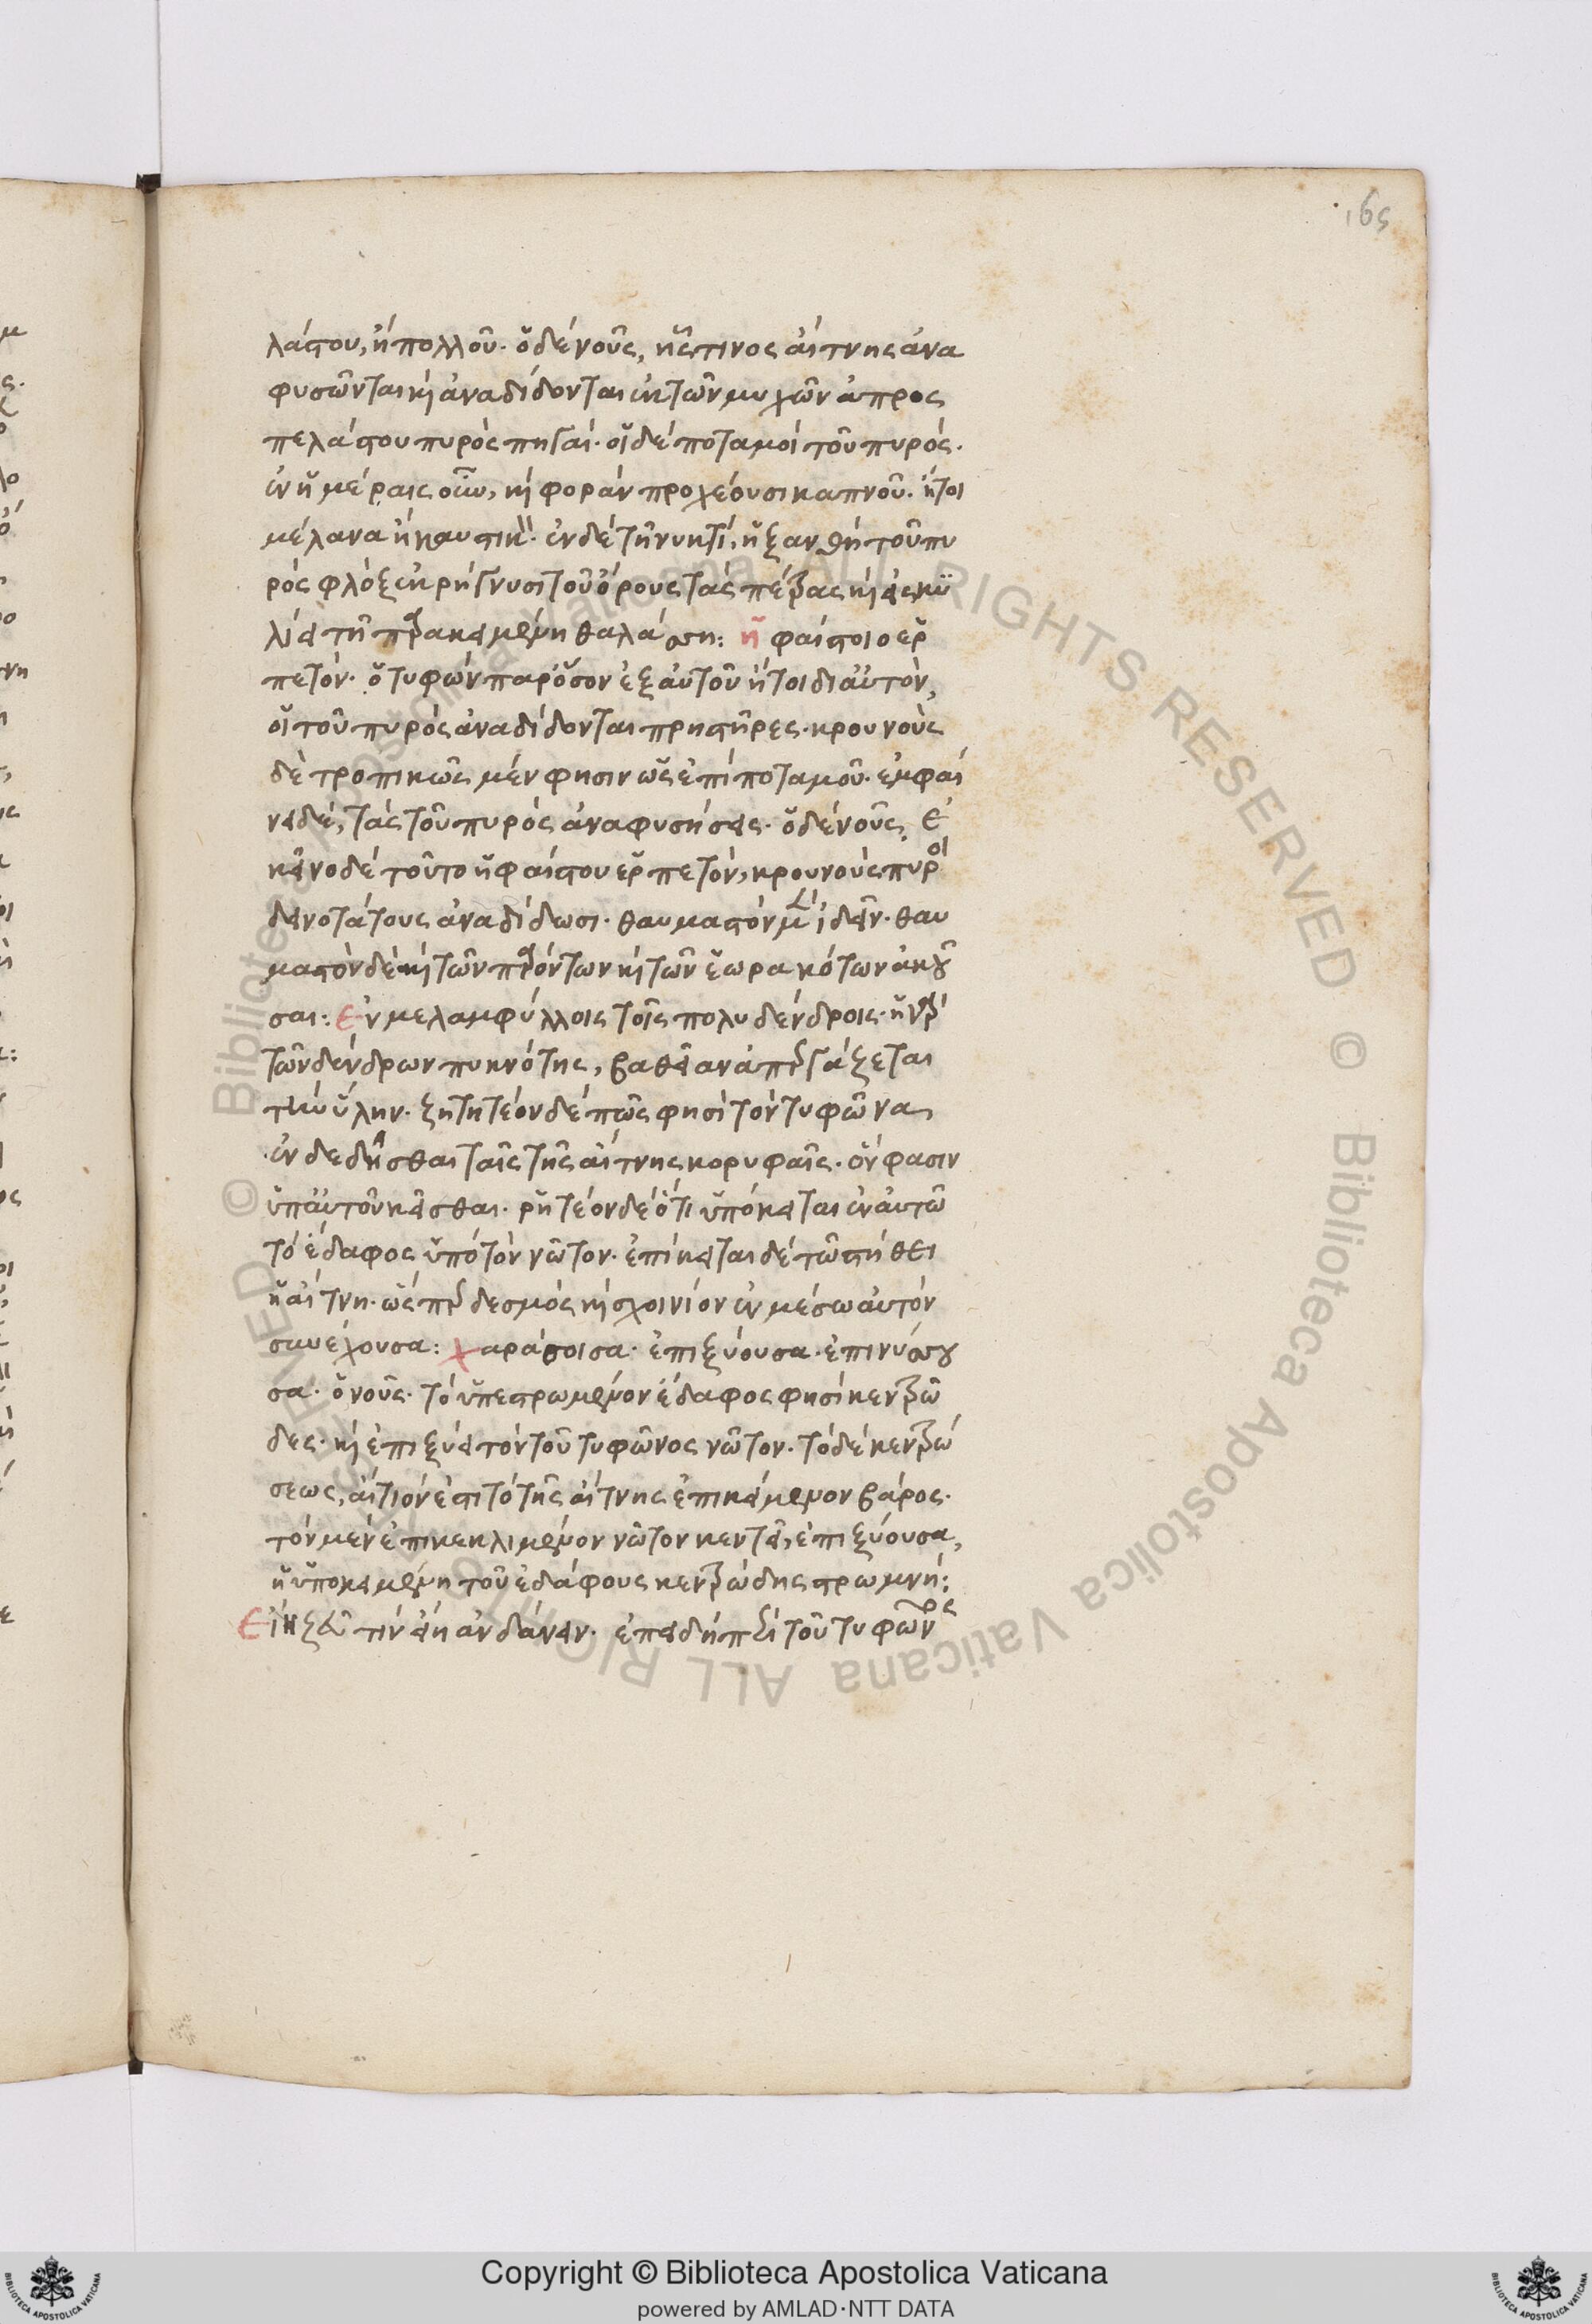 165
λάστου, ἢ πολλοῦ. ὁ δὲ νοῦς, ἧς τινος αἴτνης ἀνα
φυσῶνται καὶ ἀναδίδονται ἐκ τῶν μυχῶν ἀπρος
πελάστου πυρὸς πηγαί. οἱ δὲ ποταμοὶ τοῦ πυρός.
ἐν ἡμέραις οὖν, καὶ φορὰν προχέουσι καπνοῦ. ἤτοι
μέλανα ἢ καυστικὴ. ἐν δὲ τῆ νυκτὶ, ἡ ξανθὴ τοῦ πυ
ρὸς φλὸξ ἐκρήγνυσι τοῦ ὄρους τὰς πέτρας καὶ εἰσκυ
λίει τῆ παρακειμένη θαλάσση: ἡ φαίστοιο ἑρ
πετόν. ὁ τυφών παρόσον ἐξ αὐτοῦ ἤτοι δι αὐτὸν,
οἱ τοῦ πυρὸς ἀναδίδονται πρηστῆρες. κρουνοὺς
δὲ τροπικῶς μέν φησιν ὡς ἐπὶ ποταμοῦ. ἐμφαί
νει δέ, τὰς τοῦ πυρὸς ἀναφυσήσεις. ὁ δὲ νοῦς, ἐ
κεῖνο δὲ τοῦτο ἡφαίστου ἑρπετὸν, κρουνοὺς πυρὸς
δεινοτάτους ἀναδίδωσι. θαυμαστὸν μὲν ἰδεῖν. θαυ
μαστὸν δὲ καὶ τῶν παρόντων καὶ τῶν ἑωρακότων ἀκοῦ
σαι: ἐν μελαμφύλλοις τοῖς πολυδένδροις. ἡ γὰρ
τῶν δένδρων πυκνότης, βαθεῖαν ἀπεργάζεται
τὴν ὕλην. ζητητέον δὲ πῶς φησὶ τὸν τυφῶνα,
ἐνδεδέσθαι ταῖς τῆς αἴτνης κορυφαῖς. ὅν φασιν
ὑπ αὐτὸν κεῖσθαι. ῥητέον δὲ ὅτι ὑπόκειται ἐν αὐτῶ
τὸ ἔδαφος ὑπὸ τὸν νῶτον. ἐπίκειται δὲ τῶ στήθει
ἡ αἴτνη. ὥσπερ δεσμὸς καὶ σχοινίον ἐν μέσω αὐτὸν
συνέχουσα: χαράσσοισα. ἐπιξύουσα. ἐπινύσσου
σα. ὁ νοῦς. τὸ ὑπεστρωμένον ἔδαφος φησὶ κεντρῶ
δες. καὶ ἐπιξύει τὸν τοῦ τυφῶνος νῶτον. τὸ δὲ κεντρώ
σεως, αἴτιόν ἐστι τὸ τῆς αἴτνης ἐπικείμενον βάρος.
τὸν μὲν ἐπικεκλιμένον νῶτον κεντεῖ, ἐπιξύουσα,
ἡ ὑποκειμένη τοῦ ἐδάφους κεντρώδης στρωμνή:
Εἴη ζεῦ τὶν εἴη ἁνδάνειν. ἐπειδὴ περὶ τοῦ τυφῶνος
Copyright © Biblioteca Apostolica Vaticana
powered by AMLAD·NTT DATA